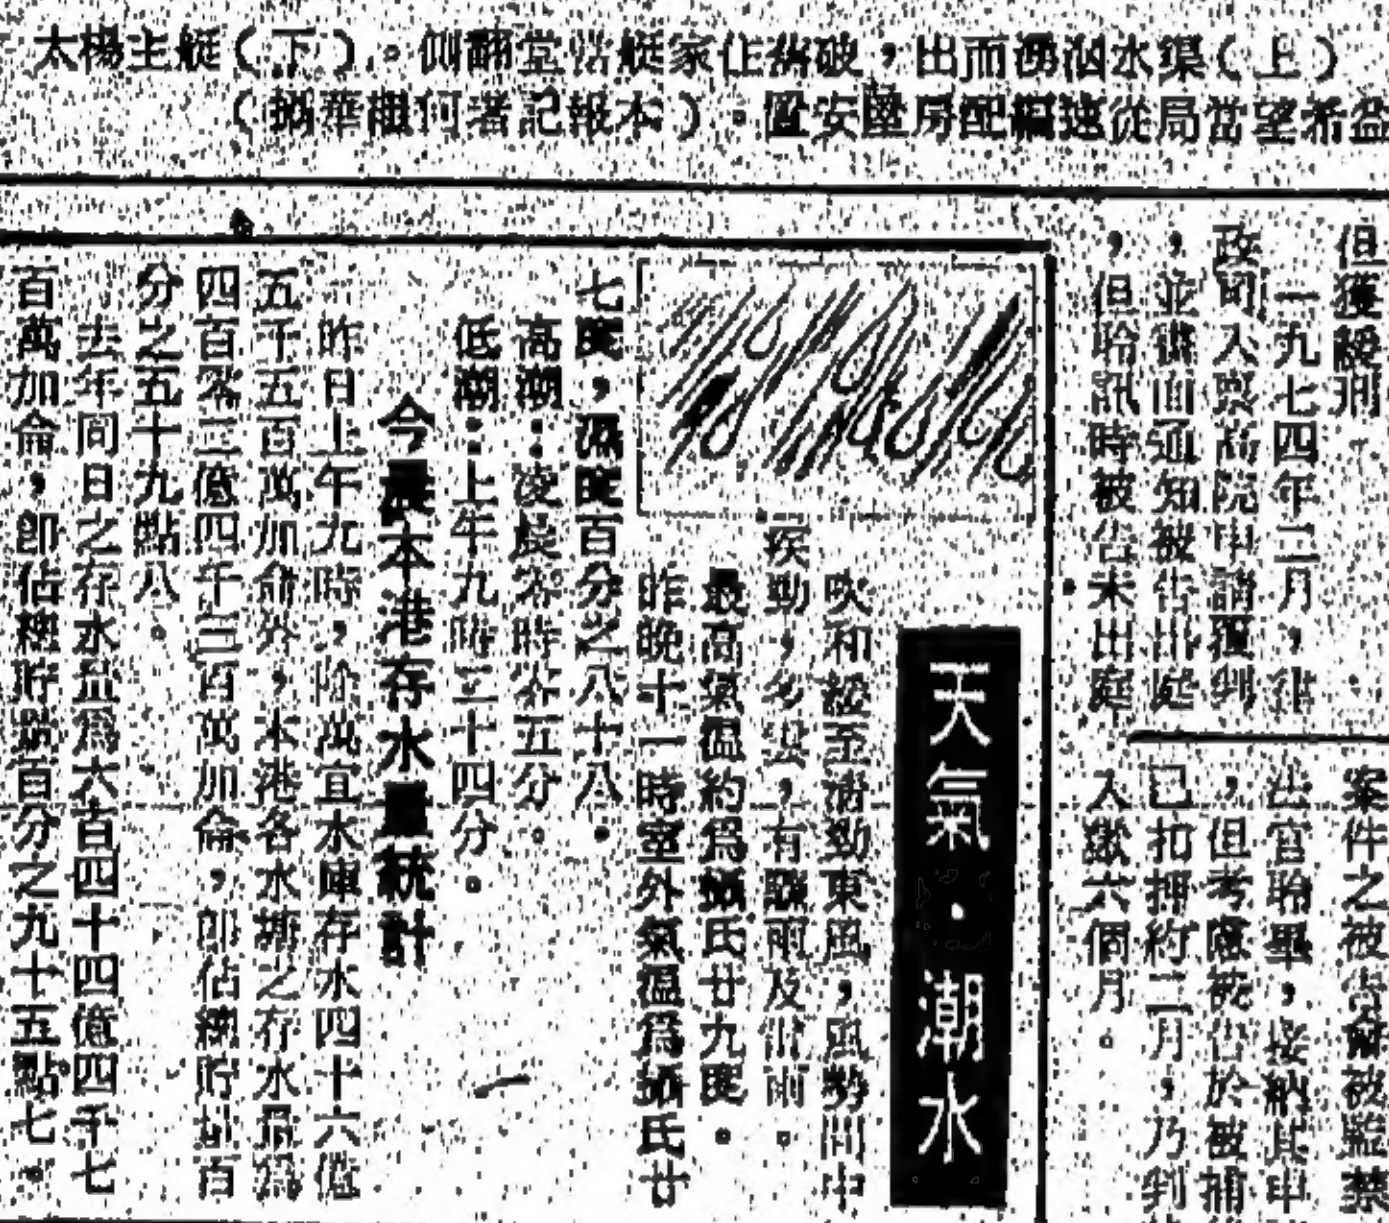 (上)渠水洶湧而出,破
家艇
堂翻側。(下)艇主楊太
盆希望當局從速編配房屋安置。(本報記者何
華攝)
但獲緩刑
一九七四年二月,律
政司入稟高院申請覆判
,並書面通知被告出庭
,但聆訊時被告未出庭
案件之被告
被監禁
出官聆
,接納其申
,但考慮被告於被捕
已扣押約二月,乃判
入獄六個月。
天氣·潮水
吹和緩至清勁東風,風勢間中
疾勁,多雲,有驟雨及
雨。
最高氣溫約為攝氏廿九度。
昨晚十一時室外氣溫為攝氏廿
七度,濕度百分之八十八。
高潮:凌晨零時零五分。
低潮:上午九時三十四分。
今晨本港存水量統計
昨日上午九時,除萬宜水庫存水四十六億
五千五百萬加侖外,本港各水塘之存水量為
四百零三億四千三百萬加侖,即佔總貯量百
分之五十九點八。
去年同日之存水量為六百四十四億四千七
百萬加侖,即佔總貯量百分之九十五點七。